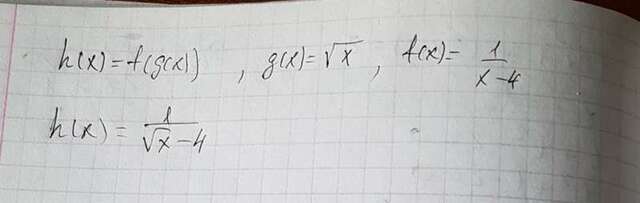 h(x) = f(g(x)) , g(x) = √x , f(x) = 1/(x-4)
h(x) = 1/(√x-4)